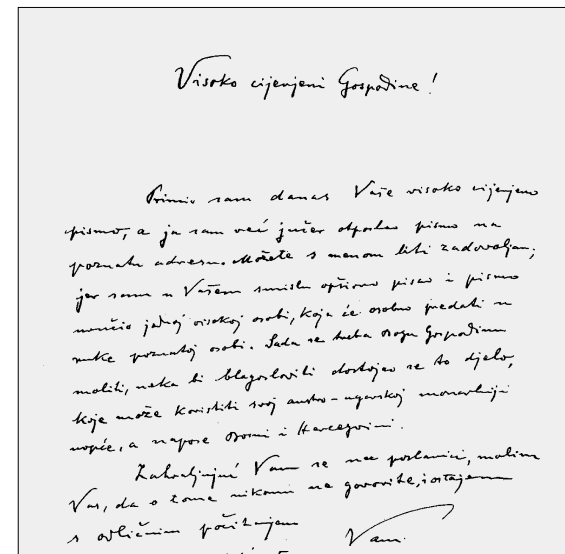 Visoko cijenjeni Gospodine!
Primio sam danas Vaše visoko cijenjeno
pismo, a ja sam već jučer otposlao pismo na
poznatu adresu. Možete s menom biti zadovoljan;
jer sam u Vašem smislu opširno pisao i pismo
uručio jednoj visokoj osobi, koja će osobno predati u
ruke poznatoj osobi. Sada se treba Gospodinu
moliti, neka bi blagosloviti dostojao se to djelo,
koje može koristiti svoj austro-ugarskoj monarhiji
uopće, a napose Bosni i Hercegovini.
Zahvaljujuć Vam se na poslanici, molim
Vas, da o tome nikomu ne govorite, i ostajem
s odličnim počitanjem
Vami